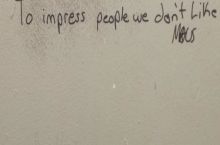 To impress people we don't like